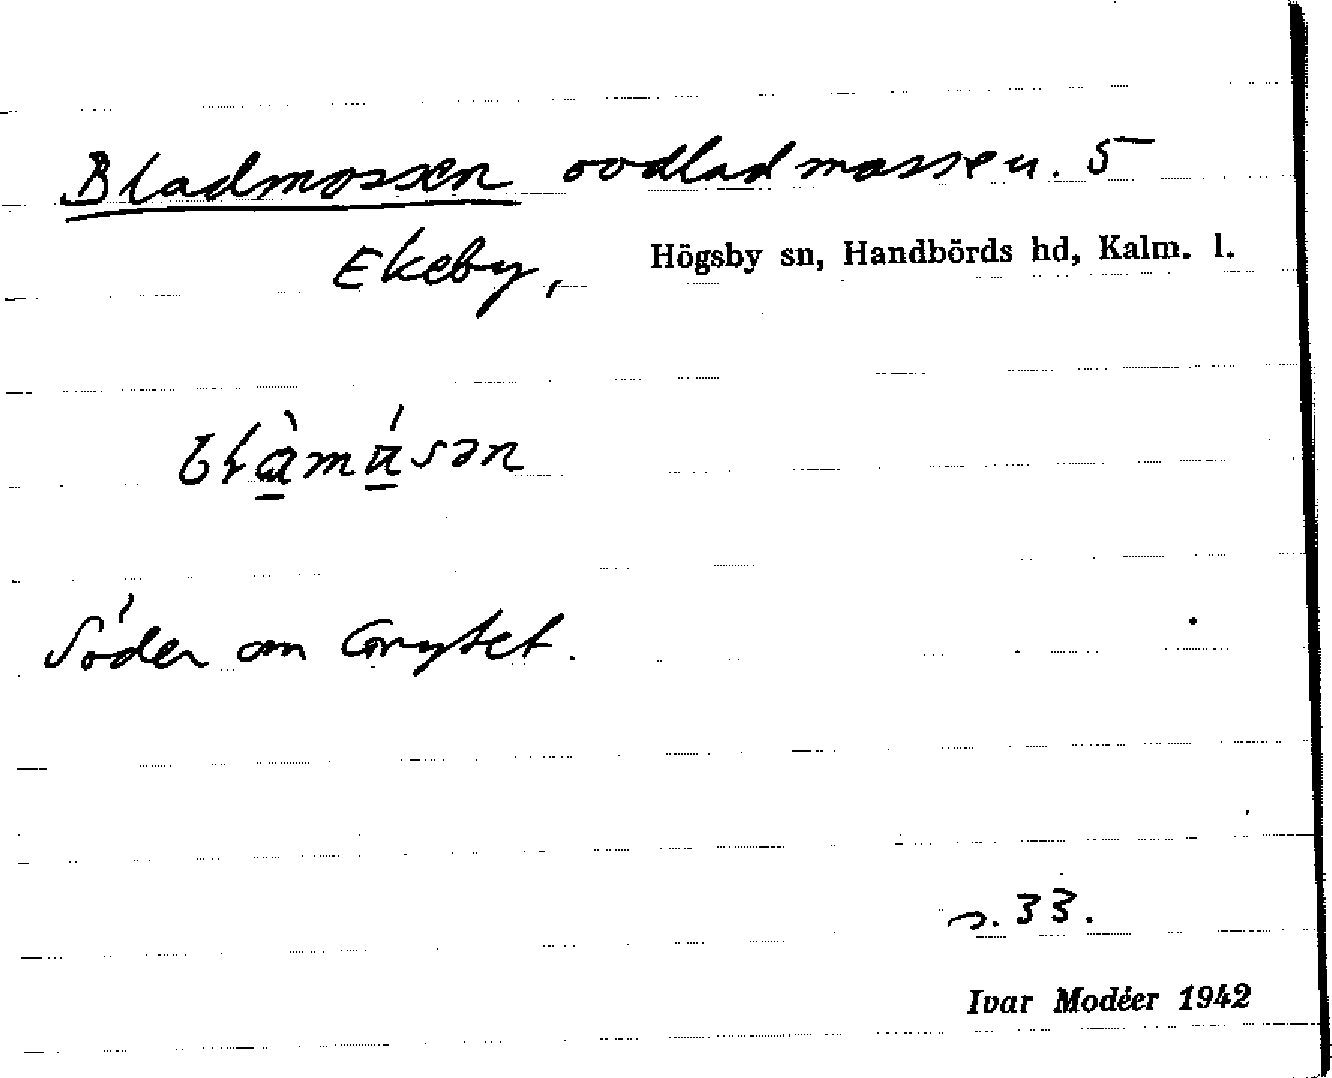 Bladmossen oodlad mosse u. 5
Ekeby, Högsby sn, Handbörds hd, Kalm. l.
Söder om Grytet.
s. 33.
Ivar Modéer 1942